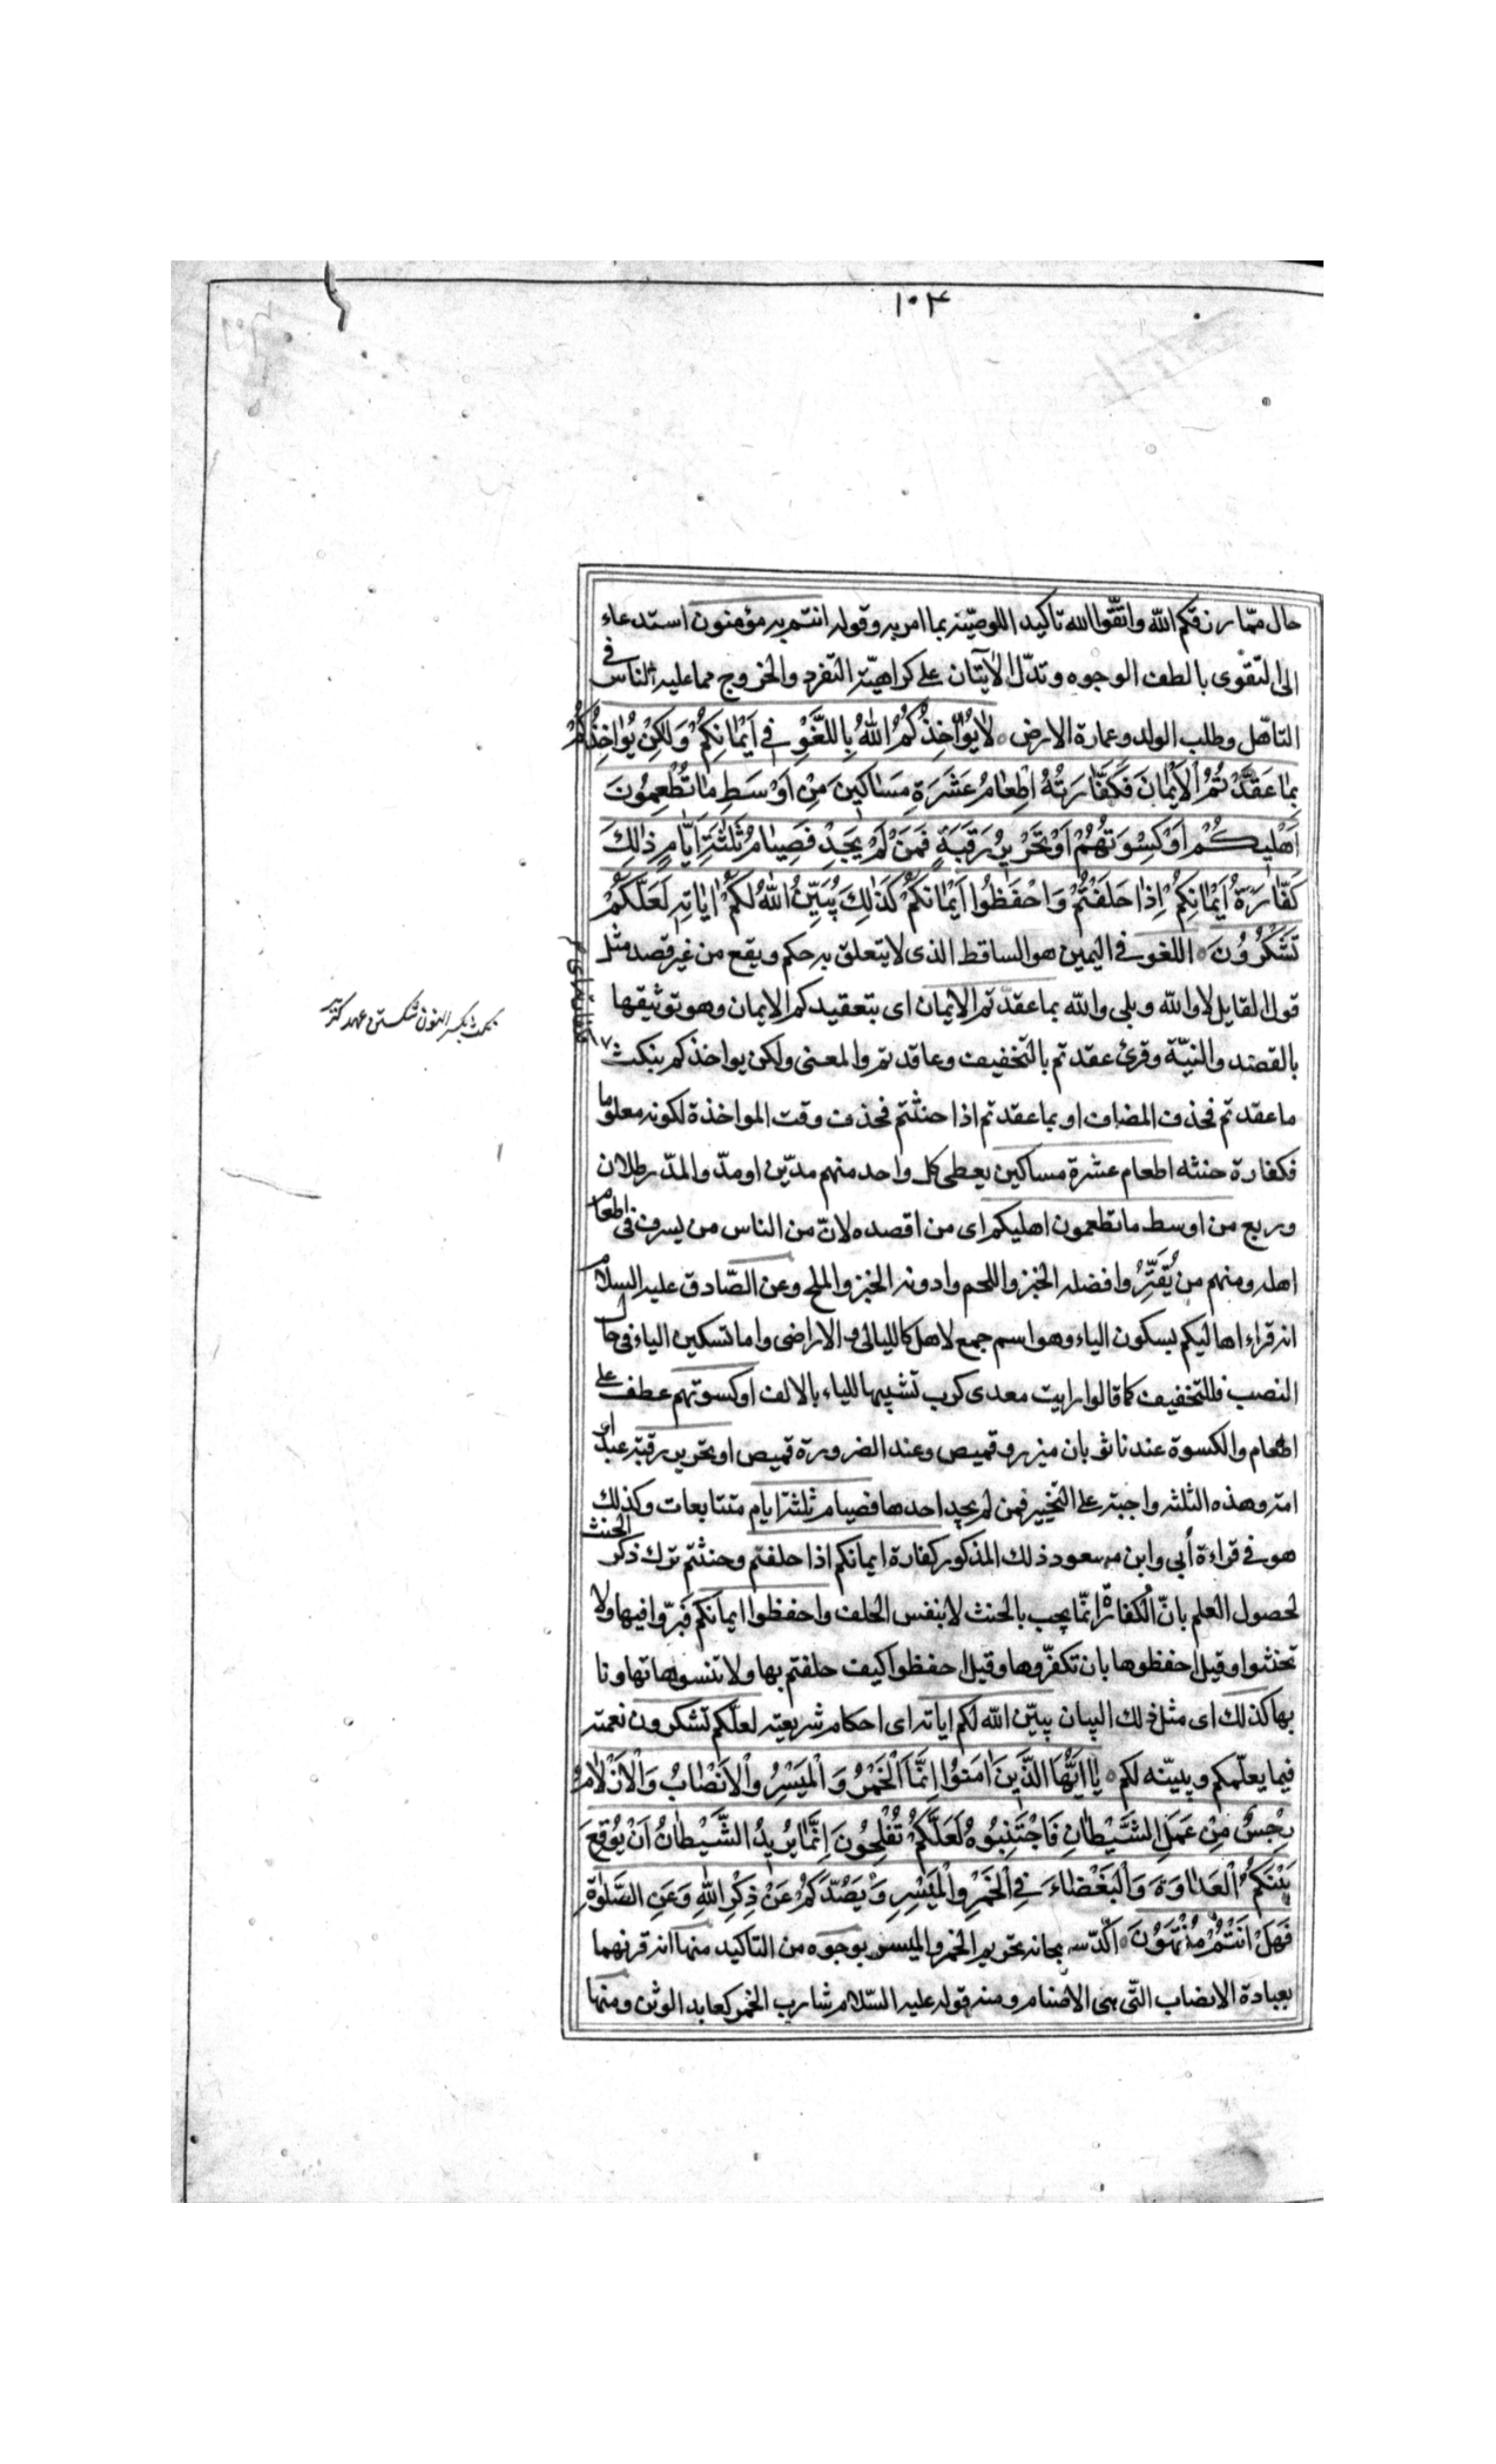 ١٠٣
حال ممّا رزقكم الله واتّقوا الله تاكيد اللوصيّة بما امر به وقوله انتم به مؤمنون استدعاء
الى التّقوى بالطف الوجوه وتدلّ الآيتان على كراهيّة التفرد والخروج مما عليه الناس فى
التأهّل وطلب الولد وعمارة الارض ۰ لَا يُؤٰاخِذُكُمُ اللهُ بِاللَّغْوِ فِى اَيْمٰانِكُمْ وَلٰكِنْ يُؤٰاخِذُكُمْ
بِمٰا عَقَّدْتُمُ الْاَيْمٰانَ فَكَفّٰارَتُهُ اِطْعٰامُ عَشَرَةِ مَسٰاكِينَ مِنْ اَوْسَطِ مٰا تُطْعِمُونَ
اَهْلِيكُمْ اَوْ كِسْوَتُهُمْ اَوْ تَحْرِيرُ رَقَبَةٍ فَمَنْ لَمْ يَجِدْ فَصِيٰامُ ثَلٰثَةِ اَيّٰامٍ ذٰلِكَ
كَفّٰارَةُ اَيْمٰانِكُمْ اِذٰا حَلَفْتُمْ وَاحْفَظُوا اَيْمٰانَكُمْ كَذٰلِكَ يُبَيِّنُ اللهُ لَكُمْ اٰيٰاتِهِ لَعَلَّكُمْ
تَشْكُرُونَ ۰ اللغو فى اليمين هو الساقط الذى لا يتعلق به حكم ويقع من غير قصد مثل
قول القايل لا والله وبلى والله بما عقدتم الايمان اى بتعقيدكم الايمان وهو توثيقها
بالقصد والنيّة وقرئ عقدتم بالتخفيف وعاقدتم والمعنى ولكن يواخذكم بنكث
ما عقدتم فحذف المضاف او بما عقدتم اذا حنثتم فحذف وقت المواخذة لكونه معلوما
فكفارة حنثه اطعام عشرة مساكين يعطى كل واحد منهم مدّين او مدّ والمدّ رطلان
وربع من اوسط ما تطعمون اهليكم اى من اقصده لانّ من الناس من يسرف فى اطعام
اهله ومنهم من يُقَتِّرُ وافضله الخبز واللحم وادونه الخبز والملح وعن الصّادق عليه السلام
انه قراء اهاليكم بسكون الياء وهو اسم جمع لاهل كالليالى والاراضى واما تسكين الياء فى حال
النصب فللتخفيف كما قالوا رايت معدى كرب تشبيها للياء بالالف او كسوتهم عطف على
اطعام والكسوة عندنا ثوبان ميزر وقميص وعند الضرورة قميص او تحرير رقبة عبد او
امة وهذه الثلثه واجبة على التخيير فمن لم يجد احدها فصيام ثلثة ايام متتابعات وكذلك
هو فى قراءة أبى وابن مسعود ذلك المذكور كفارة ايمانكم اذا حلفتم وحنثتم ترك ذكر الحنث
لحصول العلم بانّ الكفارة انّما يجب بالحنث لا بنفس الحلف واحفظوا ايمانكم فبرّوا فيها ولا
تحنثوا وقيل احفظوها بان تكفّروها وقيل احفظوا كيف حلفتم بها ولا تنسوها تهاونا
بها كذلك اى مثل ذلك البيان يبيّن الله لكم اياته اى احكام شريعته لعلّكم تشكرون نعمته
فيما يعلّمكم ويبيّنه لكم ۰ يٰا اَيُّهَا الَّذينَ اٰمَنُوا اِنَّمَا الْخَمْرُ وَ الْمَيْسِرُ وَالْاَنْصٰابُ وَالْاَزْلٰامُ
رِجْسٌ مِنْ عَمَلِ الشَّيْطٰانِ فَاجْتَنِبُوهُ لَعَلَّكُمْ تُفْلِحُونَ اِنَّمٰا يُرِيدُ الشَّيْطٰانُ اَنْ يُوقِعَ
بَيْنَكُمُ الْعَدٰاوَةَ وَالْبَغْضٰاءَ فِى الْخَمْرِ وَالْمَيْسِرِ وَيَصُدَّكُمْ عَنْ ذِكْرِ اللهِ وَعَنِ الصَّلٰوةِ
فَهَلْ اَنْتُمْ مُنْتَهُونَ ۰ اكّد سبحانه تحريم الخمر والميسر بوجوه من التاكيد منها انه قرنهما
بعبادة الانصاب التّى هى الاصنام ومنه قوله عليه السّلام شارب الخمر كعابد الوثن ومنها
نكث بكسر النون شكستن عهد كنز